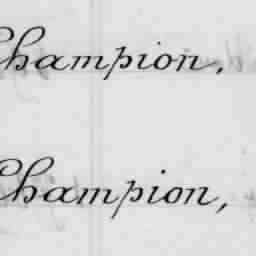 Champion,
Champion,